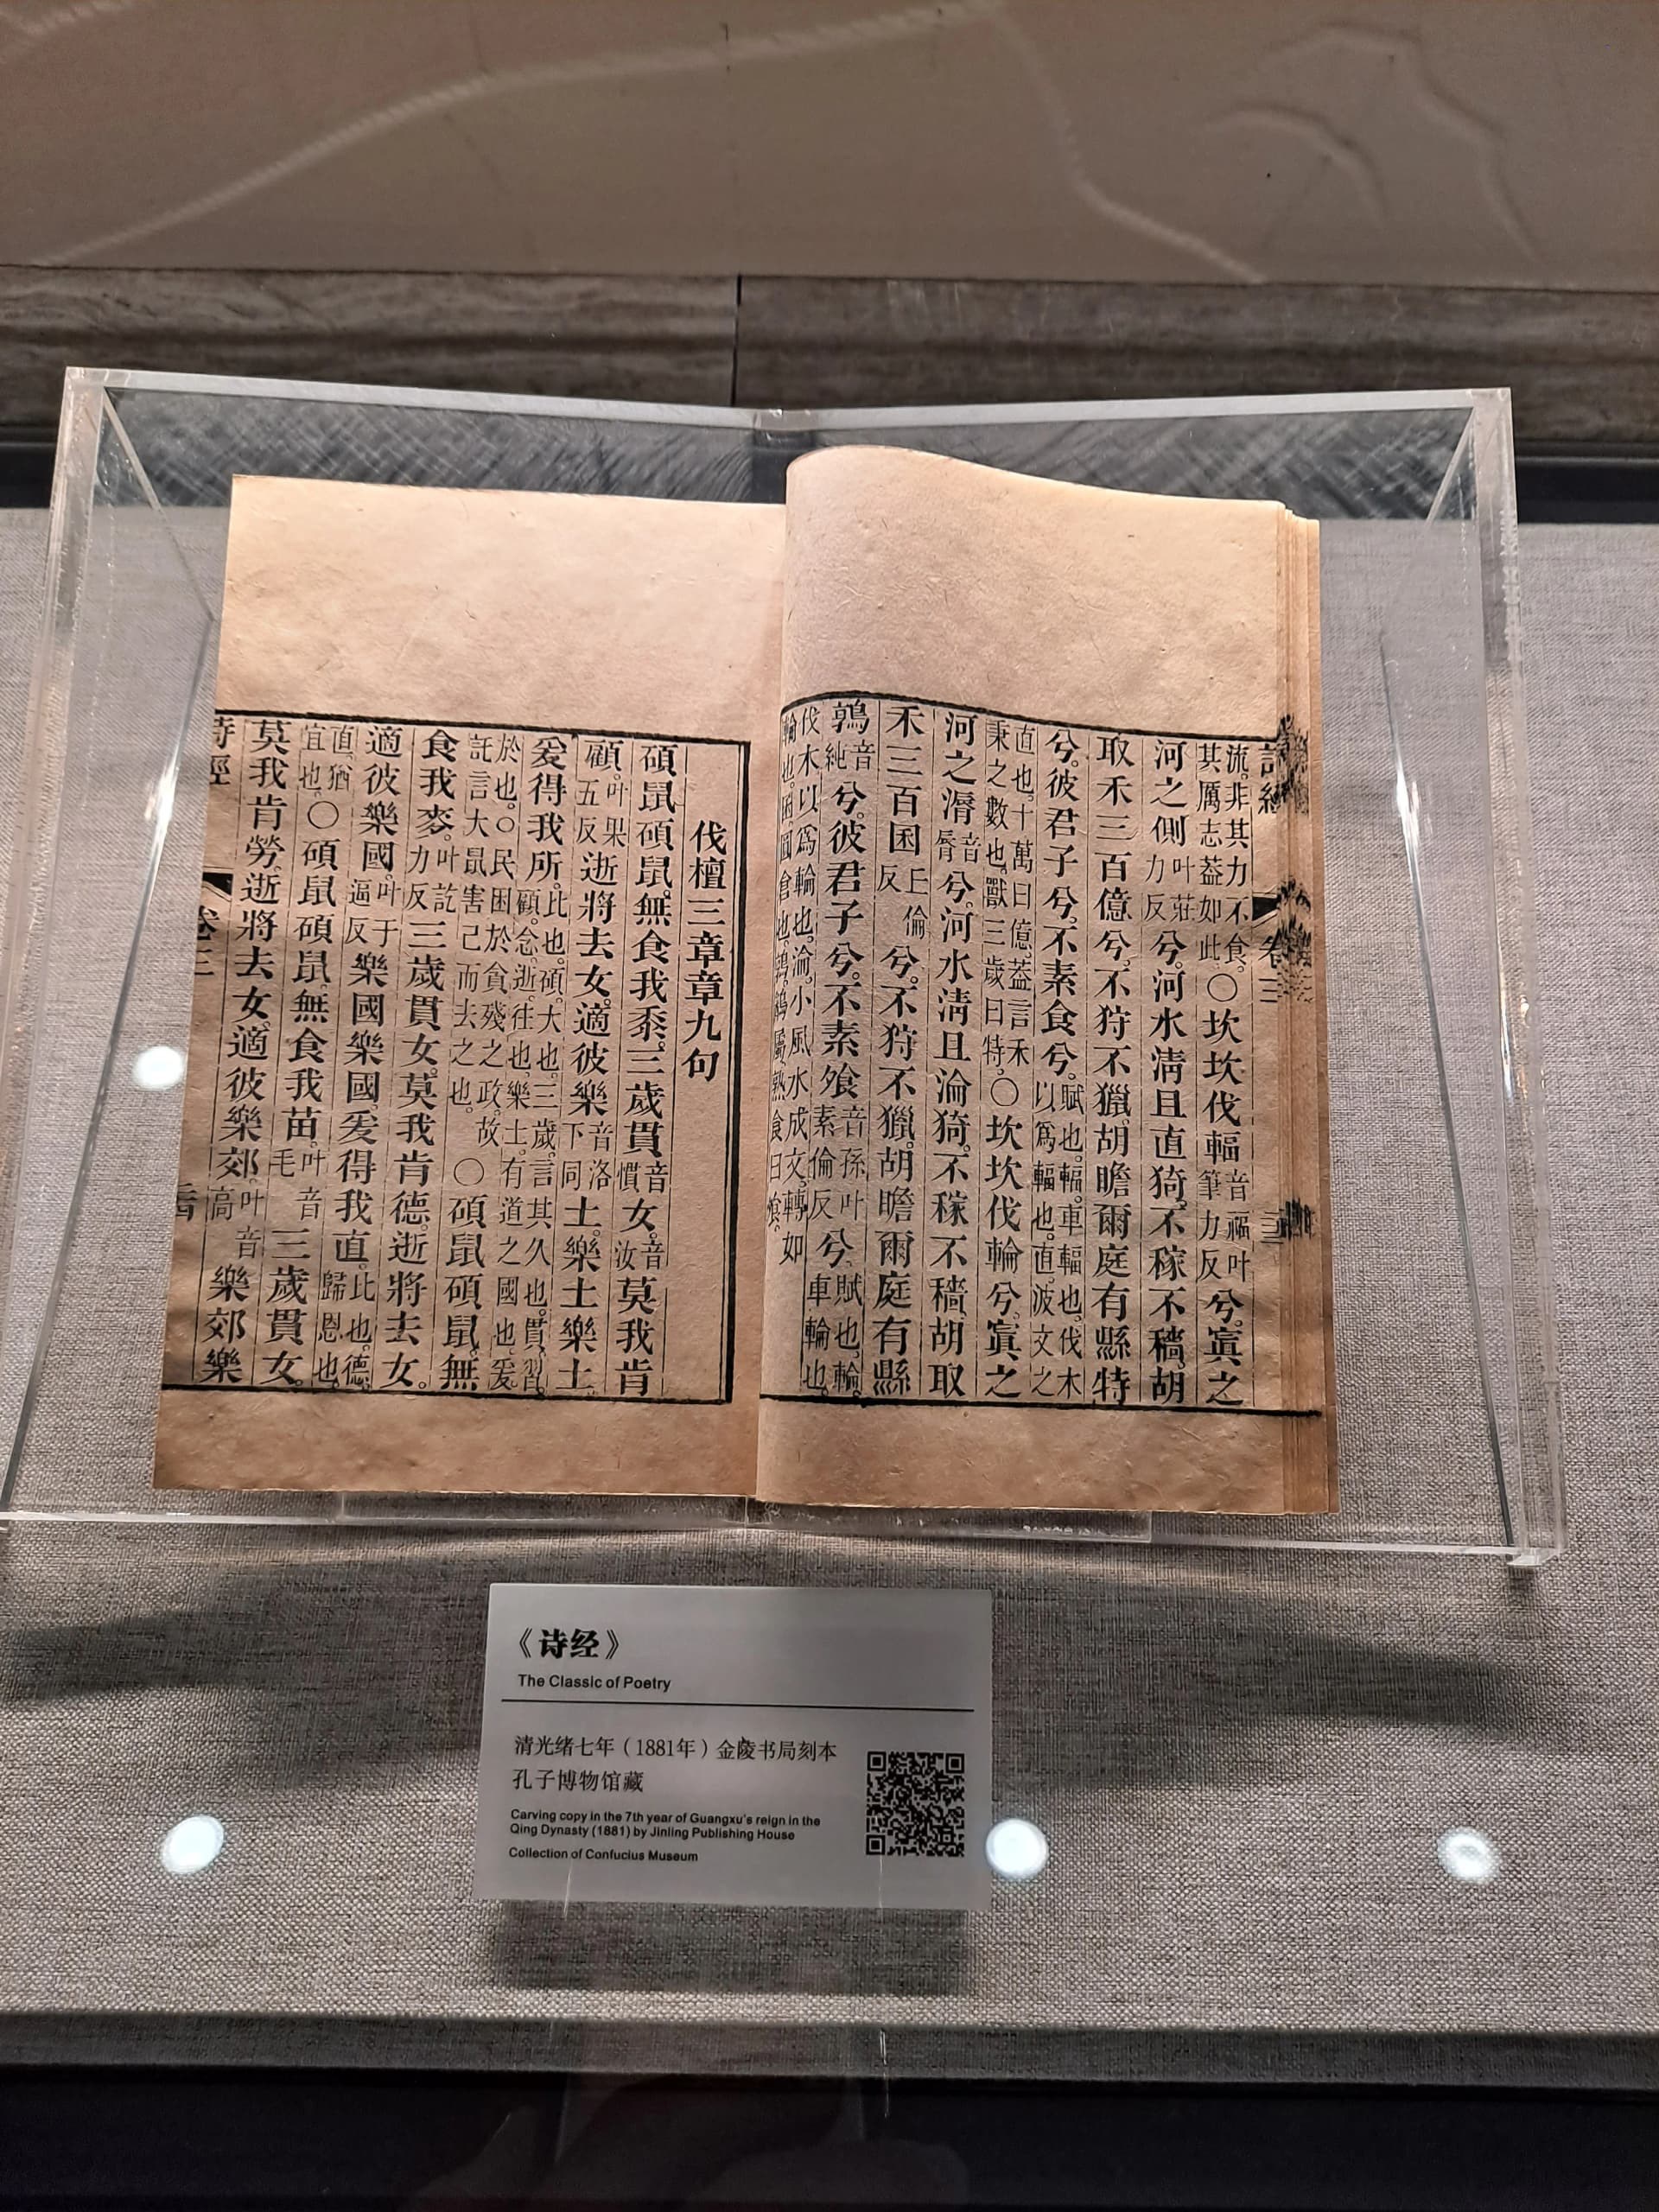 詩經 卷三
流。非其力不食。其厲志葢如此。○坎坎伐輻音福叶筆力反兮。寘之
河之側叶莊力反兮。河水淸且直猗。不稼不穡。胡
取禾三百億兮。不狩不獵。胡瞻爾庭有縣特
兮。彼君子兮。不素食兮。賦也。輻。車輻也。伐木以爲輻也。直。波文之
直也。十萬曰億。葢言禾秉之數也。獸三歲曰特。○坎坎伐輪兮。寘之
河之漘音脣兮。河水淸且淪猗。不稼不穡。胡取
禾三百囷丘倫反兮。不狩不獵。胡瞻爾庭有縣
鶉音純兮。彼君子兮。不素飱音孫叶素倫反兮。賦也。輪。車輪也。
伐木以爲輪也。淪。小風水成文。轉如輪也。囷。圓倉也。鶉。鵪屬。熟食曰飱。
伐檀三章章九句
碩鼠碩鼠。無食我黍。三歲貫音慣女。音汝莫我肯
顧。叶果五反逝將去女。適彼樂音洛下同土。樂土樂土。
爰得我所。比也。碩。大也。三歲。言其久也。貫。習。顧。念。逝。往也。樂土。有道之國也。爰。
於也。○民困於貪殘之政。故託言大鼠害己而去之也。○碩鼠碩鼠。無
食我麥。叶訖力反三歲貫女。莫我肯德。逝將去女。
適彼樂國。叶于逼反樂國樂國。爰得我直。比也。德。歸恩也。
直。猶宜也。○碩鼠碩鼠。無食我苗。叶音毛三歲貫女。
莫我肯勞。逝將去女。適彼樂郊。叶音高樂郊樂
詩經 卷三
《诗经》
The Classic of Poetry
清光绪七年（1881年）金陵书局刻本
孔子博物馆藏
Carving copy in the 7th year of Guangxu's reign in the
Qing Dynasty (1881) by Jinling Publishing House
Collection of Confucius Museum